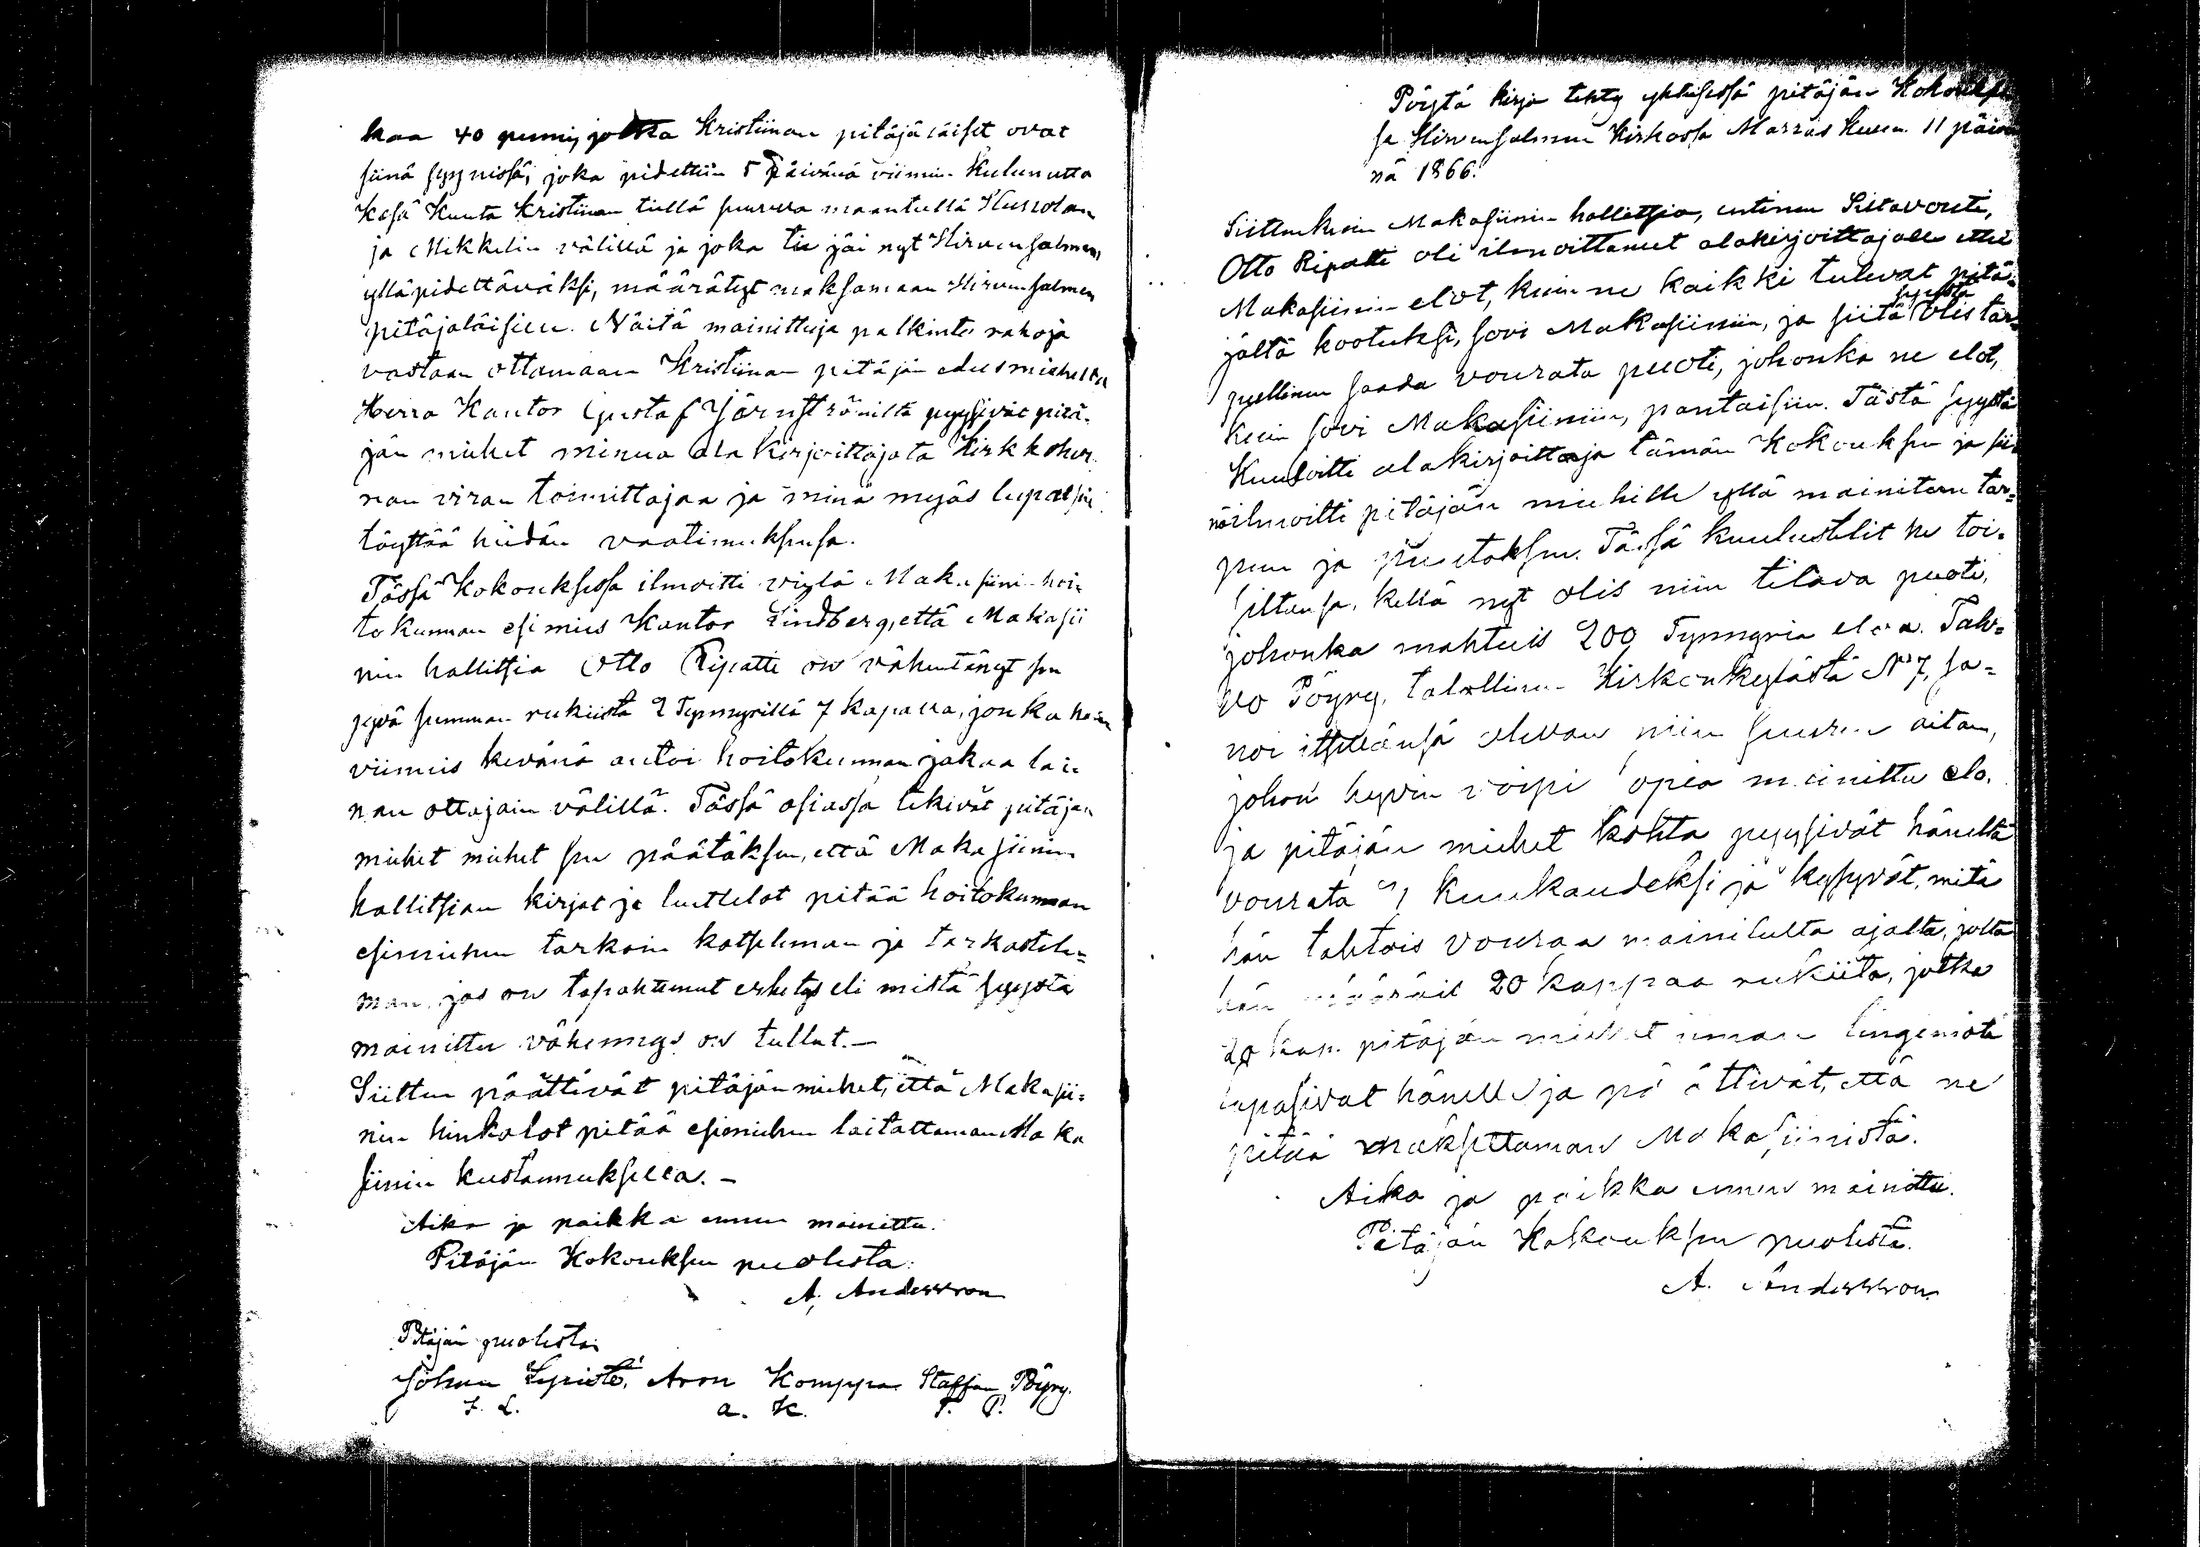 kaa 40 penniä, jotka Kristiinan pitäjäläiset ovat
siinä syynissä, joka pidettiin 5 päivänä viimein kulunutta
Kesä Kuuta Kristiinan tiellä suurella maantiellä
ja Mikkelin välillä ja joka tie jäi nyt Hirvensalmen
ylläpidettäväksi, määrätyt maksamaan Hirvensalmen
pitäjäläisille. Näitä mainittuja palkinto rahoja
vastaan ottamaan Kristiinan pitäjän edusmieheltä
Herra Kantor Gustaf Järnströmiltä pyysivät pitä-
jän miehet minua ala kirjoittajata Kirkkoher-
ran viran toimittajaa ja minä myös lupasin
täyttää heidän vaatimuksensa.
Tässä Kokouksessa ilmoitti vielä Makasiini hoi-
tokunnan esimies Kantor Lindberg, että Makasii
nin hallitsia Otto Ripatti on vähentänyt sen
jyvä summan rukiista 2 Tynnyrillä 7 kapalla, jonka hän
viimeis kevänä antoi hoitokunnan jakaa lai-
nan ottajain välillä. Tässä asiassa tekivät pitäjän
miehet miehet sen päätöksen, että Makasiinin
hallitsian kirjat ja luettelot pitää hoitokunnan
esimiehen tarkoin katseleman ja tarkastele-
man, jos on tapahtunut erhetys eli mistä syystä
mainittu vähennys on tullut.—
Siitten päättivät pitäjän miehet, että Makasii-
nin hinkalot pitää esimiehen laitattaman Maka
siinin kustannuksella.—
Aika ja paikka ennen mainittu.
Pitäjän Kokouksen puolesta:
A. Andersson
Pitäjän puolesta:
Johan Aron Komppa Staffan Pöyry.
J. L. A. K. S. P.
Pöytä kirja tehty yhteisessä pitäjän Kokoukse
sa Hirvensalmen Kirkossa Marras Kuun 11 päivä
nä 1866.
Siittenkuin Makasiinin hallitsia, entinen Siltavouti,
Otto Ripatti oli ilmoittanut alakirjoittajalle ettei
Makasiinin elot, kuin ne kaikki tulevat pitä-
jältä kootuksi, sovi Makasiiniin, ja siitä syystä olis tar-
peellinen saada vourata puoti, johonka ne elot,
kuin sovi Makasiiniin, pantaisiin. Tästä syystä
Kuulutti alakirjoittaja tämän Kokouksen ja sii
nä ilmoitti pitäjän miehille yllä mainitun tar-
peen ja puutoksen. Tässä kuulustelit he toi-
siltansa, kellä nyt olis niin tilava puoti,
johonka mahtuis 200 Tynnyriä eloa. Tah-
vo Pöyry, talollinen Kirkonkylästä N:o 7, sa-
noi itsellänsä olevan niin suuren aitan,
johon hyvin voipi mainittu elo.
ja pitäjän miehet kohta pyysivät häneltä
vourata kuukaudeksi ja kysyivät, mitä
hän tahtois vouraa mainitulta ajalta, jolta
hän määräis 20 kappaa rukiita, jotka
20 kap. pitäjän miehet ilman tingimätä
lupasivat hänelle ja päättivät, että ne
pitää maksettaman Makasiinista.
Aika ja paikka ennen mainittu.
Pitäjän Kokouksen puolesta.
A. Andersson